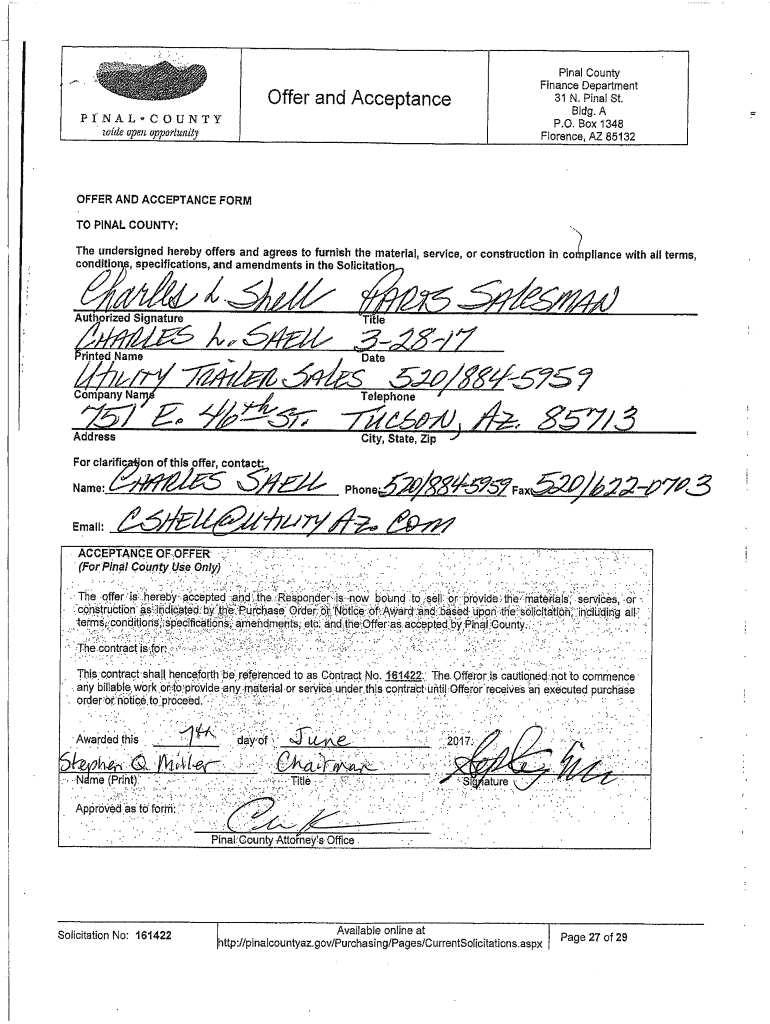 PINAL • COUNTY
wide open opportunity
Offer and Acceptance
Pinal County
Finance Department
31 N. Pinal St.
Bldg. A
P.O. Box 1348
Florence, AZ 85132
OFFER AND ACCEPTANCE FORM
TO PINAL COUNTY:
The undersigned hereby offers and agrees to furnish the material, service, or construction in compliance with all terms,
conditions, specifications, and amendments in the Solicitation.
Charles L Shell PARTS SALESMAN
Authorized Signature Title
CHARLES L. SHELL 3-28-17
Printed Name Date
UTILITY TRAILER SALES 520/884-5959
Company Name Telephone
751 E. 46th ST. TUCSON, AZ. 85713
Address City, State, Zip
For clarification of this offer, contact:
Name: CHARLES SHELL Phone: 520/884-5959 Fax: 520/622-0703
Email: CSHELL@UTILITYAZ.COM
ACCEPTANCE OF OFFER
(For Pinal County Use Only)
The offer is hereby accepted and the Responder is now bound to sell or provide the materials, services, or
construction as indicated by the Purchase Order or Notice of Award and based upon the solicitation, including all
terms, conditions, specifications, amendments, etc. and the Offer as accepted by Pinal County.
The contract is for:
This contract shall henceforth be referenced to as Contract No. 161422. The Offeror is cautioned not to commence
any billable work or to provide any material or service under this contract until Offeror receives an executed purchase
order or notice to proceed.
Awarded this 7th day of June 2017.
Stephen Q Miller Chairman
Name (Print) Title Signature
Approved as to form:
Pinal County Attorney's Office
Solicitation No: 161422
Available online at
http://pinalcountyaz.gov/Purchasing/Pages/CurrentSolicitations.aspx
Page 27 of 29